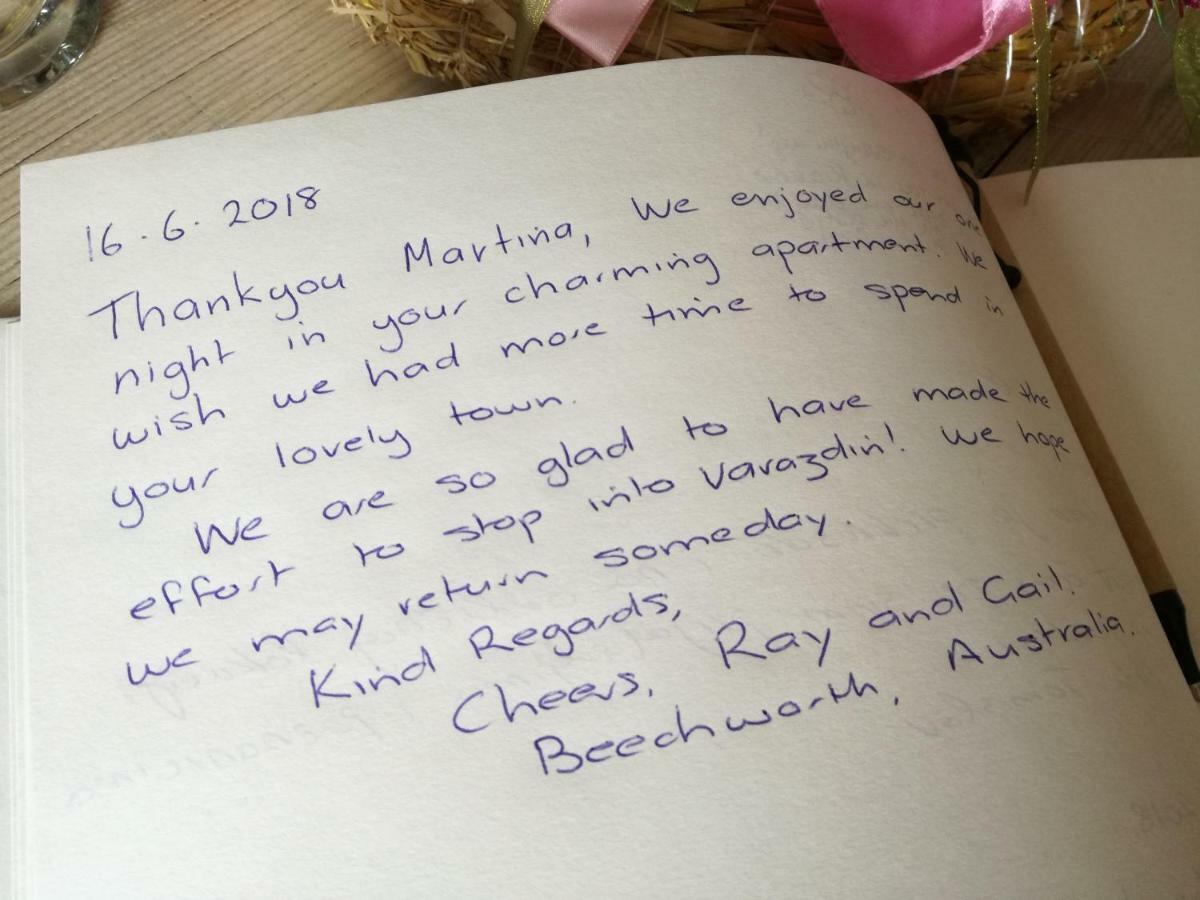 16.6.2018
Thankyou Martina, We enjoyed our one
night in your charming apartment. We
wish we had more time to spend in
your lovely town.
We are so glad to have made the
effort to stop into Varazdin! We hope
we may return someday.
Kind Regards,
Cheers, Ray and Gail.
Beechworth, Australia.